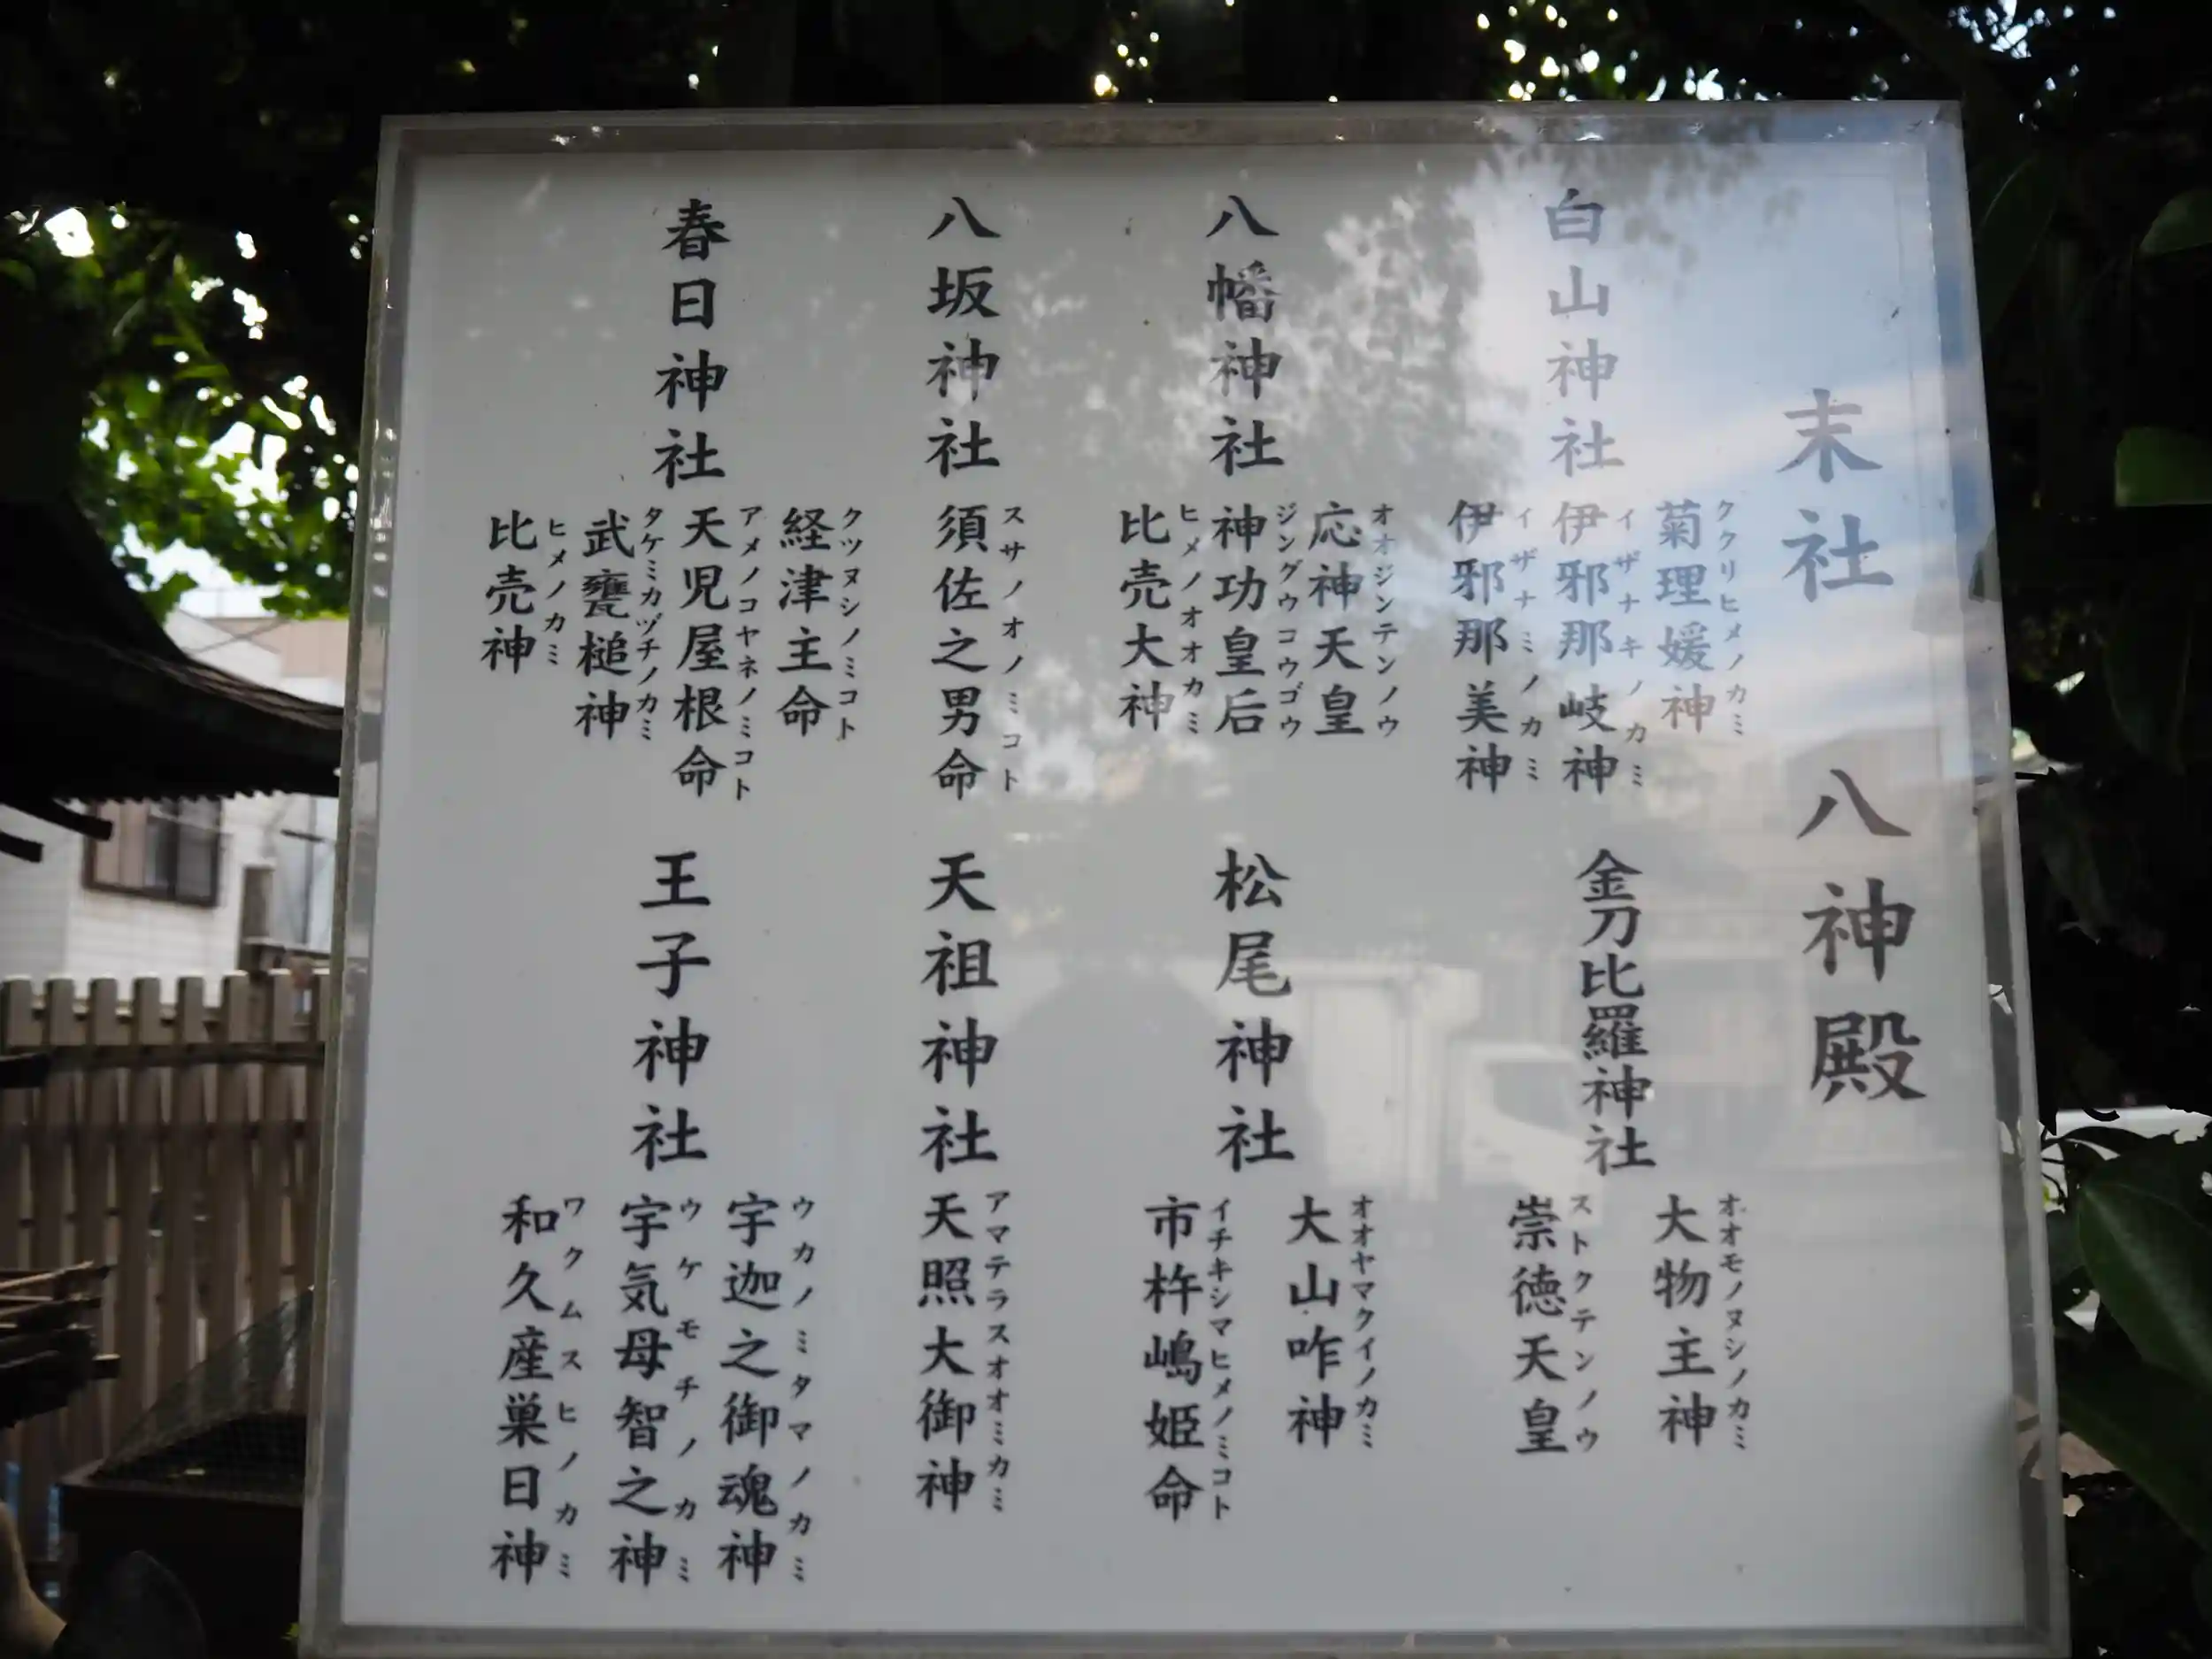 末社 八神殿
白山神社
ククリヒメノカミ
菊理媛神
イザナキノカミ
伊邪那岐神
イザナミノカミ
伊邪那美神
八幡神社
オオジンテンノウ
応神天皇
ジングウコウゴウ
神功皇后
ヒメノオオカミ
比売大神
八坂神社
スサノオノミコト
須佐之男命
春日神社
クツヌシノミコト
経津主命
アメノコヤネノミコト
天児屋根命
タケミカヅチノカミ
武甕槌神
ヒメノカミ
比売神
金刀比羅神社
オオモノヌシノカミ
大物主神
ストクテンノウ
崇徳天皇
松尾神社
オオヤマクイノカミ
大山咋神
イチキシマヒメノミコト
市杵嶋姫命
天祖神社
アマテラスオオミカミ
天照大御神
王子神社
ウカノミタマノカミ
宇迦之御魂神
ウケモチノカミ
宇気母智之神
ワクムスヒノカミ
和久産巣日神